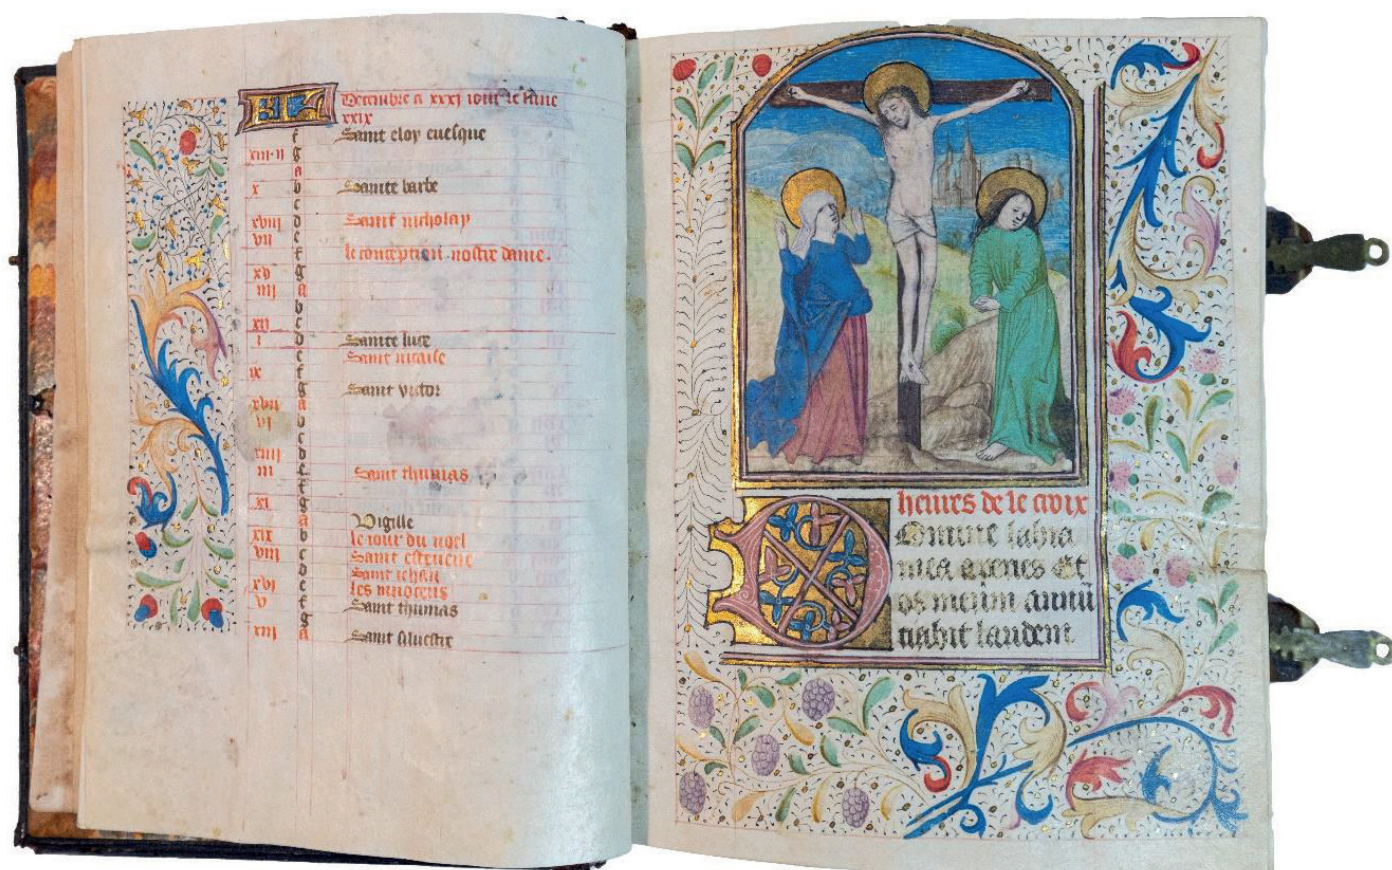 KL Decembre a xxxj iour le lune
xxix
f Saint eloy euesque
xiii·ij g
a
x b Sainte barbe
c
xviij d Saint nicholay
vij e
f le conception nostre dame.
xv g
iiij a
b
xij c
j d Sainte luce
e Saint nicaise
ix f
g Saint victor
xvij a
vj b
c
xiiij d
iij e Saint thumas
f
xj g
a Vigille
xix b le iour du noel
viij c Saint esteuene
d Saint iehan
xvj e les innocens
v f Saint thumas
g
xiij a Saint siluestre
heures de le croix
Domine labia
mea aperies Et
os meum annū
tiabit laudem